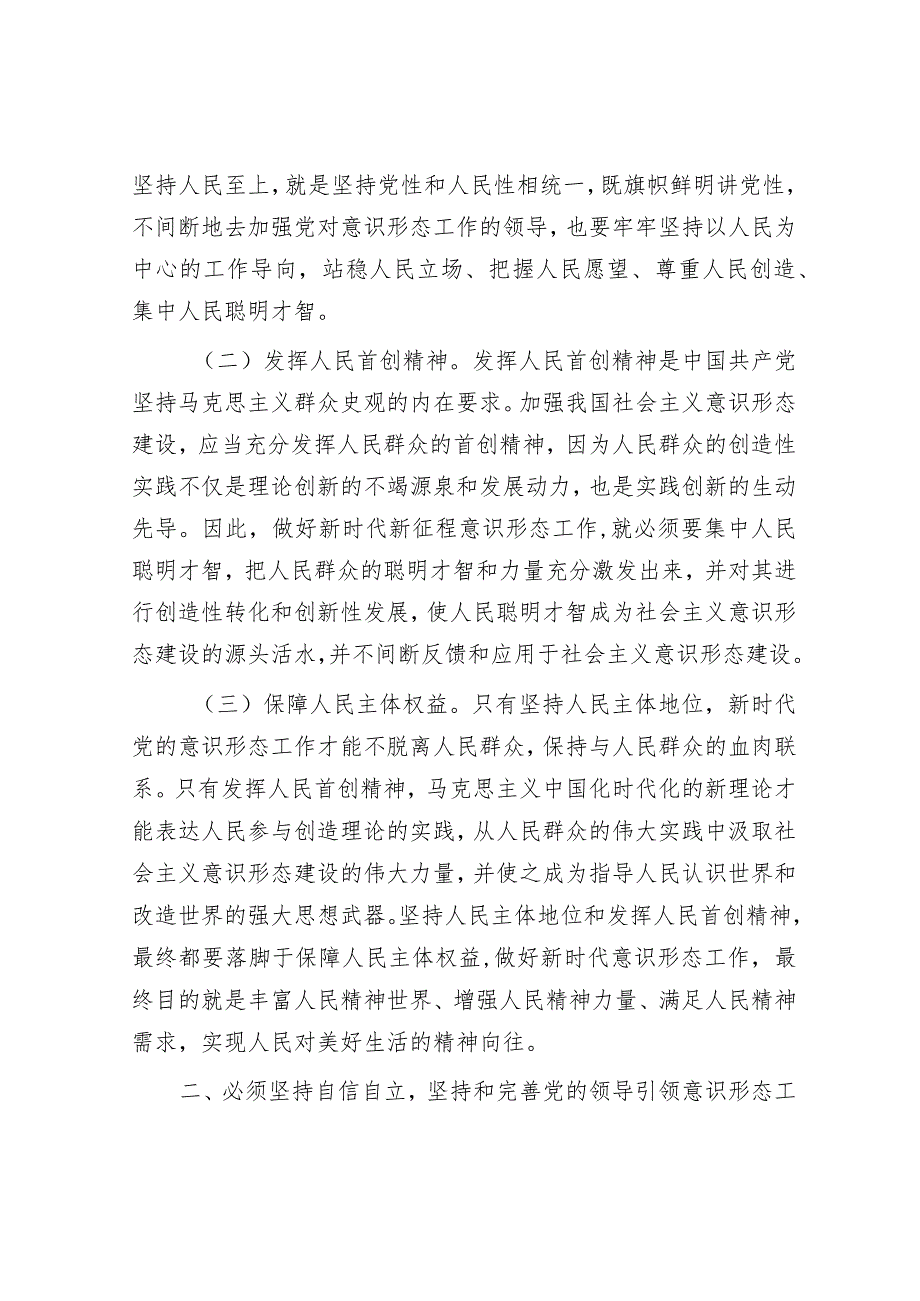 坚持人民至上，就是坚持党性和人民性相统一，既旗帜鲜明讲党性，
不间断地去加强党对意识形态工作的领导，也要牢牢坚持以人民为
中心的工作导向，站稳人民立场、把握人民愿望、尊重人民创造、
集中人民聪明才智。
（二）发挥人民首创精神。发挥人民首创精神是中国共产党
坚持马克思主义群众史观的内在要求。加强我国社会主义意识形态
建设，应当充分发挥人民群众的首创精神，因为人民群众的创造性
实践不仅是理论创新的不竭源泉和发展动力，也是实践创新的生动
先导。因此，做好新时代新征程意识形态工作,就必须要集中人民
聪明才智，把人民群众的聪明才智和力量充分激发出来，并对其进
行创造性转化和创新性发展，使人民聪明才智成为社会主义意识形
态建设的源头活水,并不间断反馈和应用于社会主义意识形态建设。
（三）保障人民主体权益。只有坚持人民主体地位，新时代
党的意识形态工作才能不脱离人民群众，保持与人民群众的血肉联
系。只有发挥人民首创精神，马克思主义中国化时代化的新理论才
能表达人民参与创造理论的实践，从人民群众的伟大实践中汲取社
会主义意识形态建设的伟大力量，并使之成为指导人民认识世界和
改造世界的强大思想武器。坚持人民主体地位和发挥人民首创精神，
最终都要落脚于保障人民主体权益,做好新时代意识形态工作，最
终目的就是丰富人民精神世界、增强人民精神力量、满足人民精神
需求，实现人民对美好生活的精神向往。
二、必须坚持自信自立，坚持和完善党的领导引领意识形态工